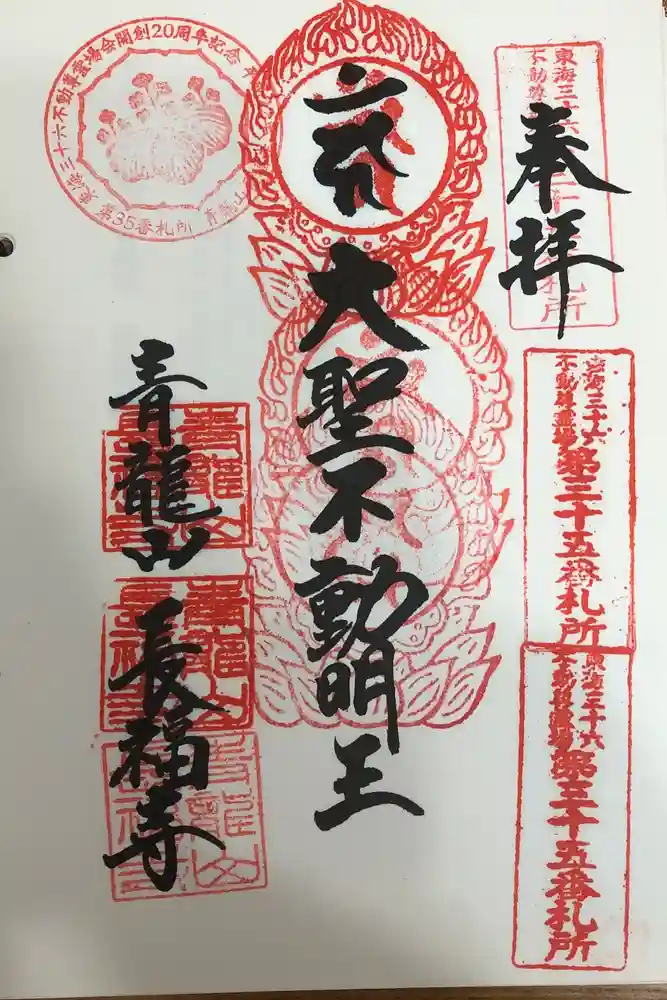 奉拝
東海三十六
不動尊
札所
東海三十六
不動尊霊場
第三十五番札所
東海三十六
不動尊霊場
第三十五番札所
大聖不動明王
東海三十六不動尊霊場会開創20周年記念
第35番札所 青龍山
青龍山
長福寺